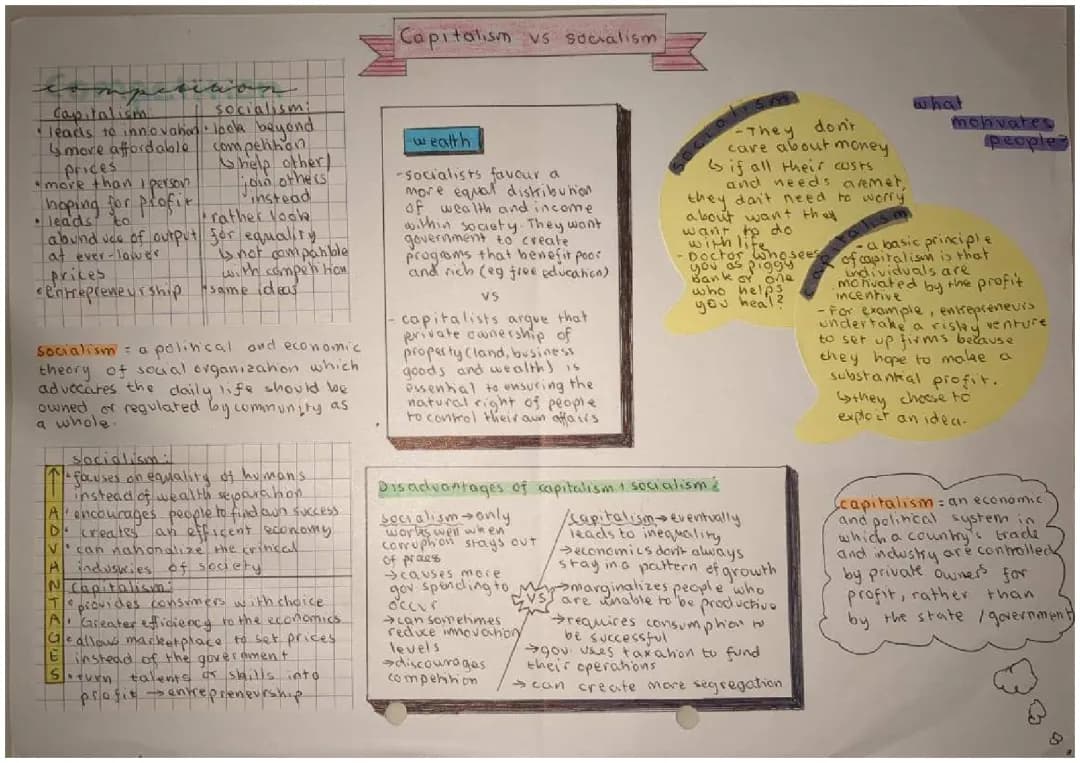 Capitalism vs socialism
Competition
Capitalism:
• leads to innovation
↳ more affordable
prices
• more than 1 person
hoping for profit
• leads to
abunduce of output
at ever-lower
prices
• entrepreneurship
socialism:
• look beyond
competition
↳ help other/
join others
instead
• rather look
for equality
↳ not compatible
with competition
• same ideas
socialism = a political and economic
theory of social organization which
advocates the daily life should be
owned or regulated by community as
a whole.
ADVANTAGES
socialism:
• focuses on equality of humans
instead of wealth separation
• encourages people to find own success
• creates an efficient economy
• can nationalize the critical
industries of society
Capitalism:
• provides consumers with choice
• Greater efficiency to the economics
• allows marketplace to set prices
instead of the government
• turn talents or skills into
profit → entrepreneurship
wealth
- socialists favour a
more equal distribution
of wealth and income
within society. They want
government to create
programs that benefit poor
and rich (eg free education)
vs
- capitalists argue that
private ownership of
property (land, business
goods and wealth) is
essential to ensuring the
natural right of people
to control their own affairs
Disadvantages of capitalism + socialism:
socialism → only
works well when
corruption stays out
of
→ causes more
gov spending to
occur
→ can sometimes
reduce innovation
levels
→ discourages
competition
VS
Capitalism → eventually
leads to inequality
→ economics don't always
stay in a pattern of growth
→ marginalizes people who
are unable to be productive
→ requires consumption to
be successful
→ gov. uses taxation to fund
their operations
→ can create more segregation
what
motivates
people?
socialism
- They don't
care about money
↳ if all their costs
and needs are met,
they don't need to worry
about want they
want to do
with life
- Doctor who sees
you as piggy
bank or one
who helps
you heal?
capitalism
- a basic principle
of capitalism is that
individuals are
motivated by the profit
incentive
- For example, entrepreneurs
undertake a risky venture
to set up firms because
they hope to make a
substantial profit.
↳ they choose to
exploit an idea.
capitalism = an economic
and political system in
which a country's trade
and industry are controlled
by private owners for
profit, rather than
by the state / government